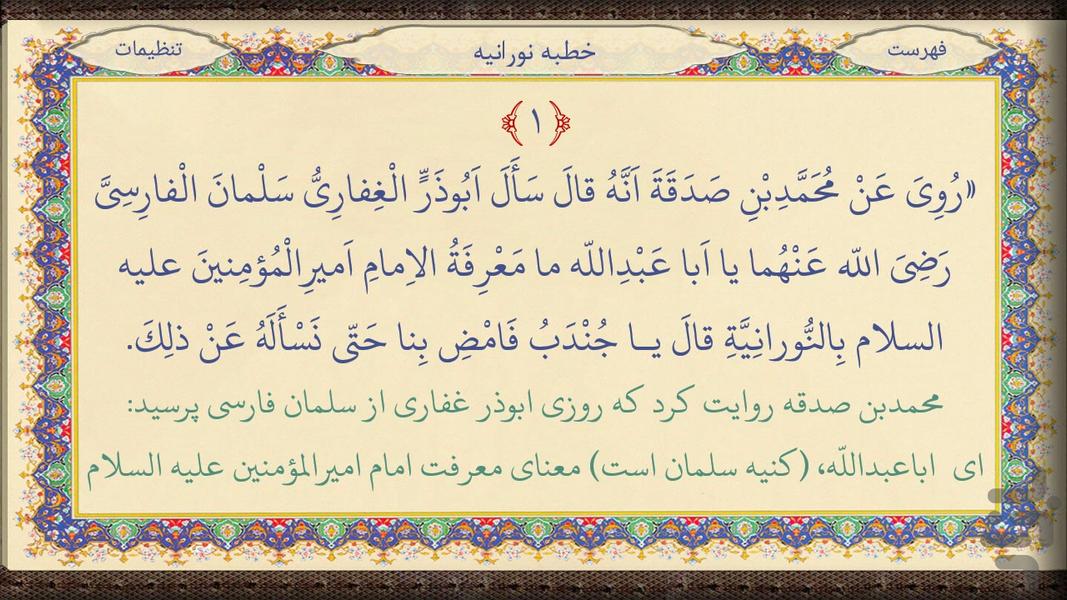 فهرست
خطبه نورانیه
تنظیمات
﴿ ۱ ﴾
«رُوِیَ عَنْ مُحَمَّدِبْنِ صَدَقَةَ اَنَّهُ قالَ سَأَلَ اَبُوذَرٍّ الْغِفارِیُّ سَلْمانَ الْفارِسِیَّ
رَضِیَ اللّه عَنْهُما یا اَبا عَبْدِاللّه ما مَعْرِفَةُ الاِمامِ اَمیرِالْمُؤمِنینَ علیه
السلام بِالنُّورانِیَّةِ قالَ یــا جُنْدَبُ فَامْضِ بِنا حَتّی نَسْأَلَهُ عَنْ ذلِکَ.
محمدبن صدقه روایت کرد که روزی ابوذر غفاری از سلمان فارسی پرسید:
ای اباعبداللّه، (کنیه سلمان است) معنای معرفت امام امیرالمؤمنین علیه السلام